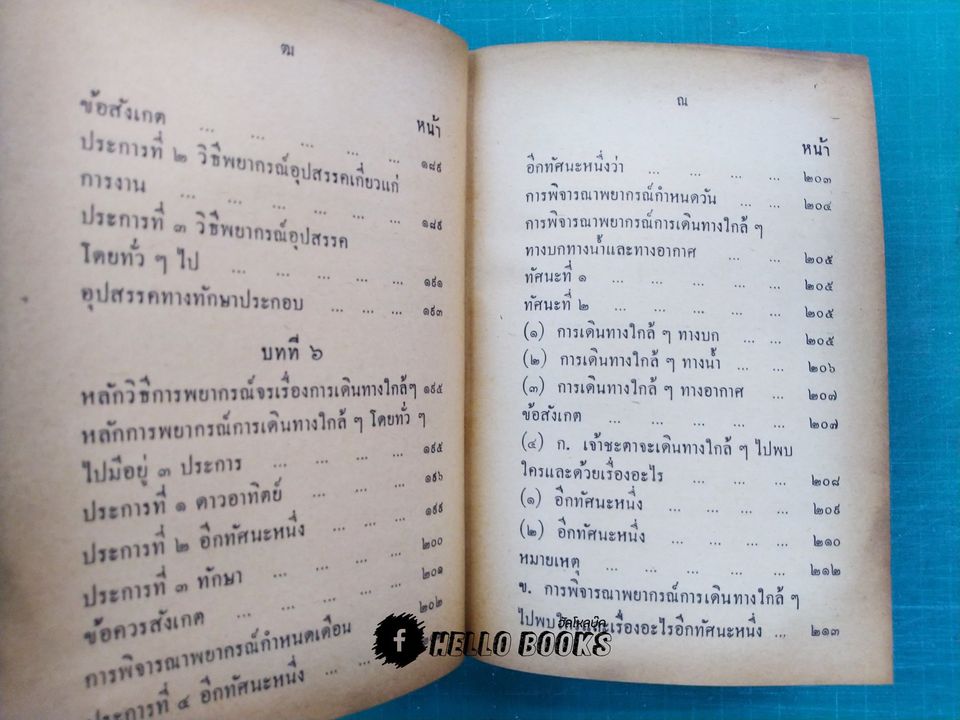 ฒ
หน้า
ข้อสังเกต ... ... ... ... ... ๑๘๙
ประการที่ ๒ วิธีพยากรณ์อุปสรรคเกี่ยวแก่
การงาน ... ... ... ... ... ... ๑๘๙
ประการที่ ๓ วิธีพยากรณ์อุปสรรค
โดยทั่ว ๆ ไป ... ... ... ... ... ๑๙๑
อุปสรรคทางทักษาประกอบ ... ... ... ๑๙๓
บทที่ ๖
หลักวิธีการพยากรณ์จรเรื่องการเดินทางใกล้ๆ ๑๙๕
หลักการพยากรณ์การเดินทางใกล้ ๆ โดยทั่ว ๆ
ไปมีอยู่ ๓ ประการ ... ... ... ... ๑๙๕
ประการที่ ๑ ดาวอาทิตย์ ... ... ... ๑๙๖
ประการที่ ๒ อีกทัศนะหนึ่ง ... ... ... ๑๙๙
ประการที่ ๓ ทักษา ... ... ... ... ๒๐๐
ข้อควรสังเกต ... ... ... ... ๒๐๑
การพิจารณาพยากรณ์กำหนดเดือน ๒๐๒
ประการที่ ๔ อีกทัศนะหนึ่ง ... ...
ณ
หน้า
อีกทัศนะหนึ่งว่า ... ... ... ... ๒๐๓
การพิจารณาพยากรณ์กำหนดวัน ... ... ๒๐๔
การพิจารณาพยากรณ์การเดินทางใกล้ ๆ
ทางบกทางน้ำและทางอากาศ ... ... ๒๐๕
ทัศนะที่ ๑ ... ... ... ... ... ๒๐๕
ทัศนะที่ ๒ ... ... ... ... ... ๒๐๕
(๑) การเดินทางใกล้ ๆ ทางบก ... ... ๒๐๕
(๒) การเดินทางใกล้ ๆ ทางน้ำ ... ... ๒๐๖
(๓) การเดินทางใกล้ ๆ ทางอากาศ ... ๒๐๗
ข้อสังเกต ... ... ... ... ... ๒๐๗
(๔) ก. เจ้าชะตาจะเดินทางใกล้ ๆ ไปพบ
ใครและด้วยเรื่องอะไร ... ... ... ๒๐๘
(๑) อีกทัศนะหนึ่ง ... ... ... ... ๒๐๙
(๒) อีกทัศนะหนึ่ง ... ... ... ... ๒๑๐
หมายเหตุ ... ... ... ... ... ๒๑๒
ข. การพิจารณาพยากรณ์การเดินทางใกล้ ๆ
ไปพบใครและเรื่องอะไรอีกทัศนะหนึ่ง ... ๒๑๓
ฮัลโหลบุ๊ค
f HELLO BOOKS